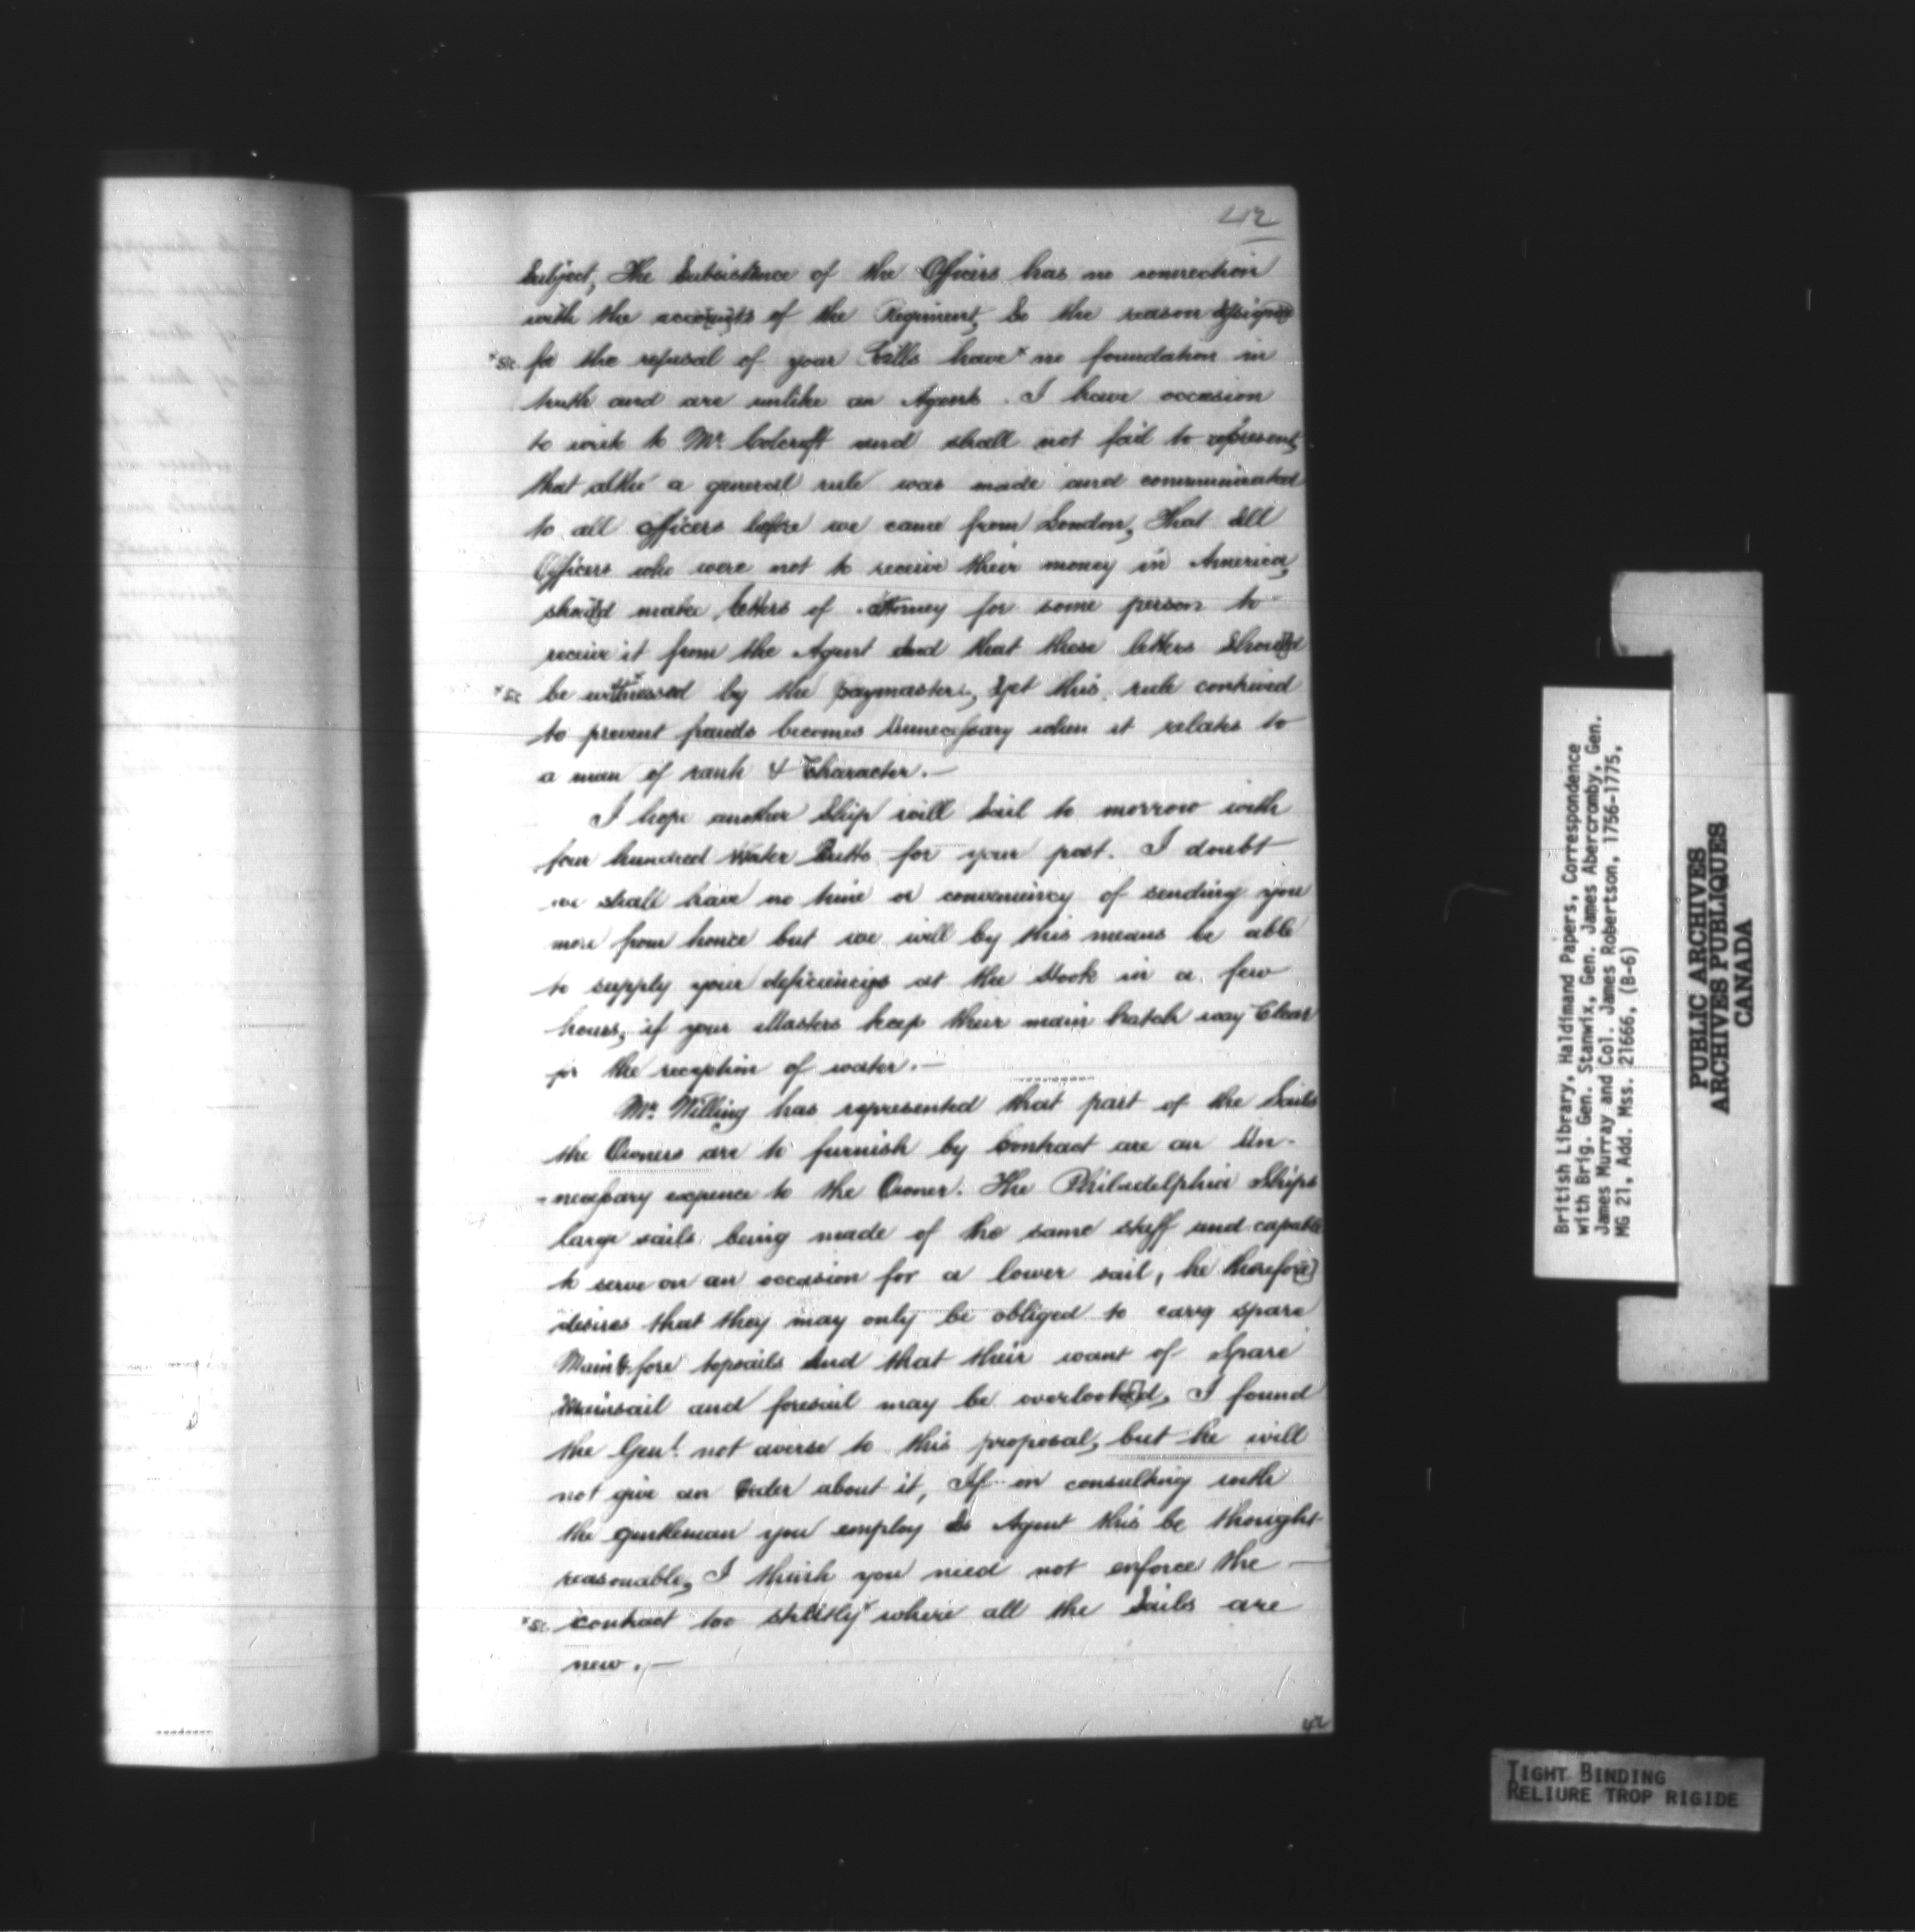 42
Subject, The Subsistence of the Officers has no connection
with the accounts of the Regiment, So the reason assigned
*Sic for the refusal of your Bills have* no foundation in
truth and are unlike an Agent. I have occasion
to write to Mr. Calcraft and shall not fail to represent,
that altho' a general rule was made and communicated
to all officers before we came from London, That all
Officers who were not to receive their money in America,
should make letters of attorney for some person to
receive it from the Agent And that these letters Should
*Sic be wittnessed* by the paymaster, Yet this rule contrived
to prevent frauds becomes Unnecessary when it relates to
a man of rank & Character. —
I hope another Ship will Sail to morrow with
four hundred Water Butts for your post. I doubt
we shall have no time or conveniency of sending you
more from hence but we will by this means be able
to supply your deficiencys at the Hook in a few
hours, if your Masters keep their main hatch way Clear
for the reception of water. —
Mr. Willing has represented that part of the Sails
the Owners are to furnish by Contract are an Un-
-necessary expence to the Owner. The Philadelphia Ships
large sails being made of the same stuff and capable
to serve on an occasion for a lower sail, he therefor[e]
desires that they may only be obliged to carry spare
Main & fore topsails And that their want of Spare
Mainsail and foresail may be overlook[e]d, I found
the Genl. not averse to this proposal, but he will
not give an Order about it, If on consulting with
the gentleman you employ As Agent this be thought
reasonable, I think you need not enforce the —
*Sic contract too strictly* where all the Sails are
new. —
42
British Library, Haldimand Papers, Correspondence
with Brig. Gen. Stanwix, Gen. James Abercromby, Gen.
James Murray and Col. James Robertson, 1756-1775,
MG 21, Add. Mss. 21666, (B-6)
PUBLIC ARCHIVES
ARCHIVES PUBLIQUES
CANADA
TIGHT BINDING
RELIURE TROP RIGIDE